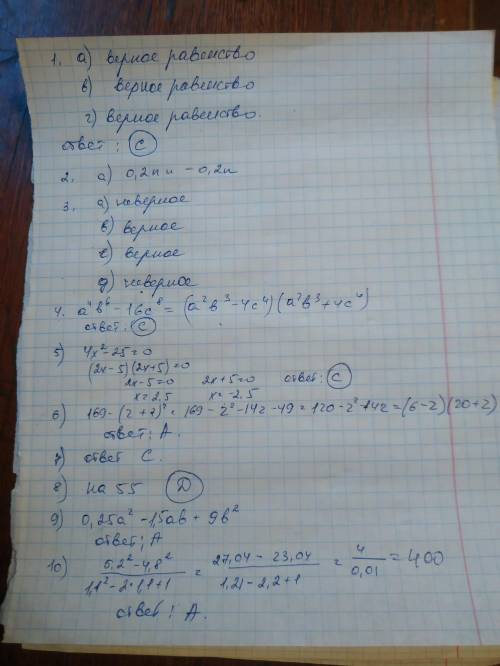 1. а) верное равенство
в) верное равенство
г) верное равенство.
ответ: С
2. а) 0,2n и -0,2n
3. а) неверное
в) верное
с) верное
д) неверное
4. a⁴b⁶ - 16c⁸ = (a²b³-4c⁴)(a²b³+4c⁴)
ответ: С
5) 4x²-25=0
(2x-5)(2x+5)=0
2x-5=0 2x+5=0 ответ: С
x=2,5 x=-2,5
6) 169-(z+7)² = 169-z²-14z-49=120-z²-14z=(6-z)(20+z)
ответ: А.
7) ответ С.
8) на 55 D
9) 0,25a²-1,5ab+9b²
ответ: А
10) 5,2²-4,8² / 1,1²-2·1,1+1 = 27,04-23,04 / 1,21-2,2+1 = 4 / 0,01 = 400
ответ: А.